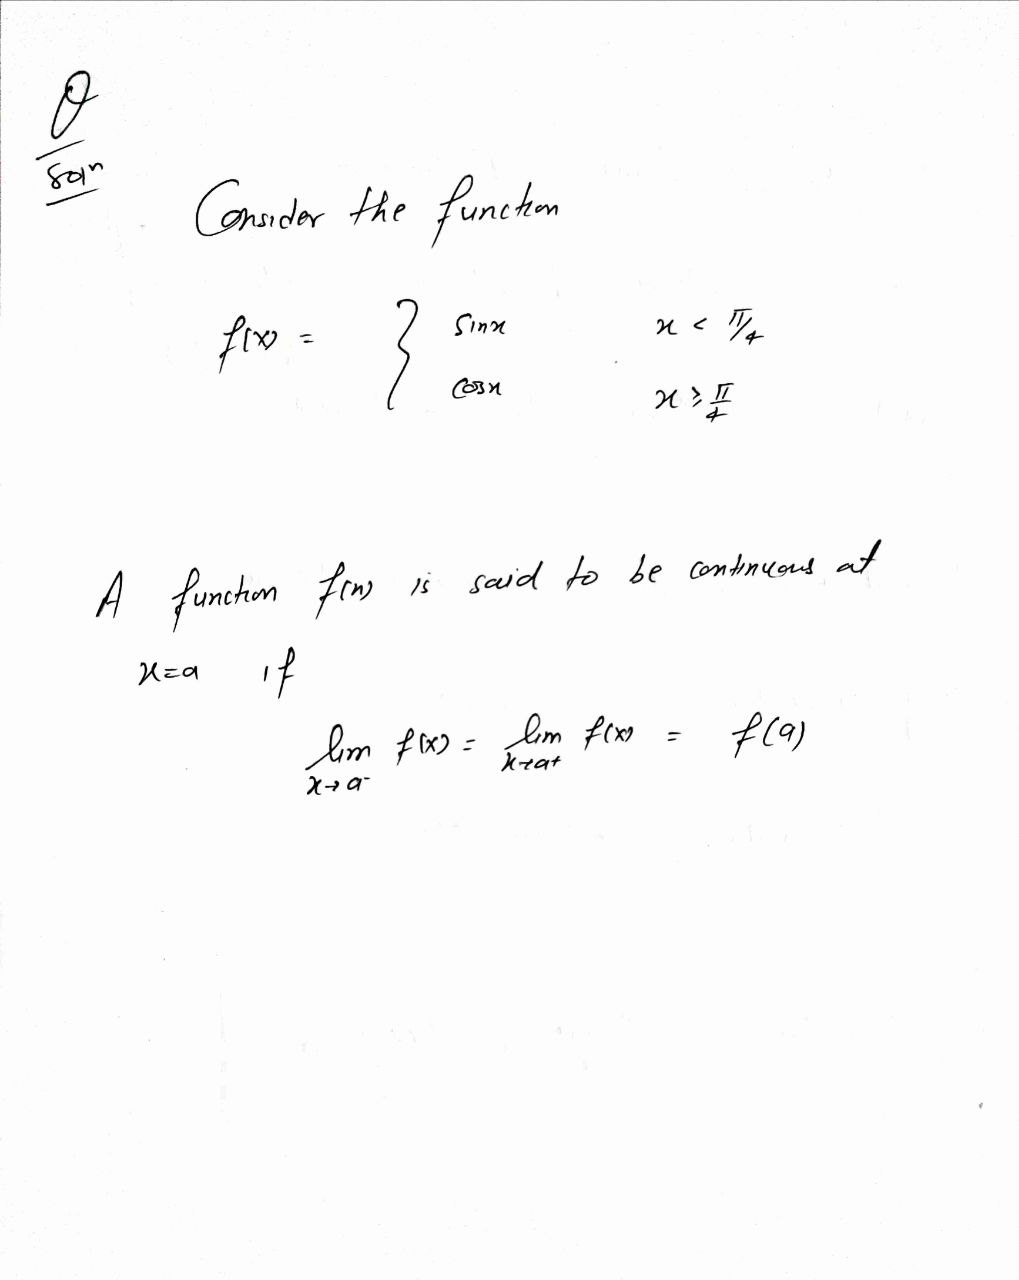 Q
Soln
Consider the function
f(x) = { sinx x < π/4
cosx x ≥ π/4
A function f(x) is said to be continuous at
x=a if
lim f(x) = lim f(x) = f(a)
x→a⁻ x→a+